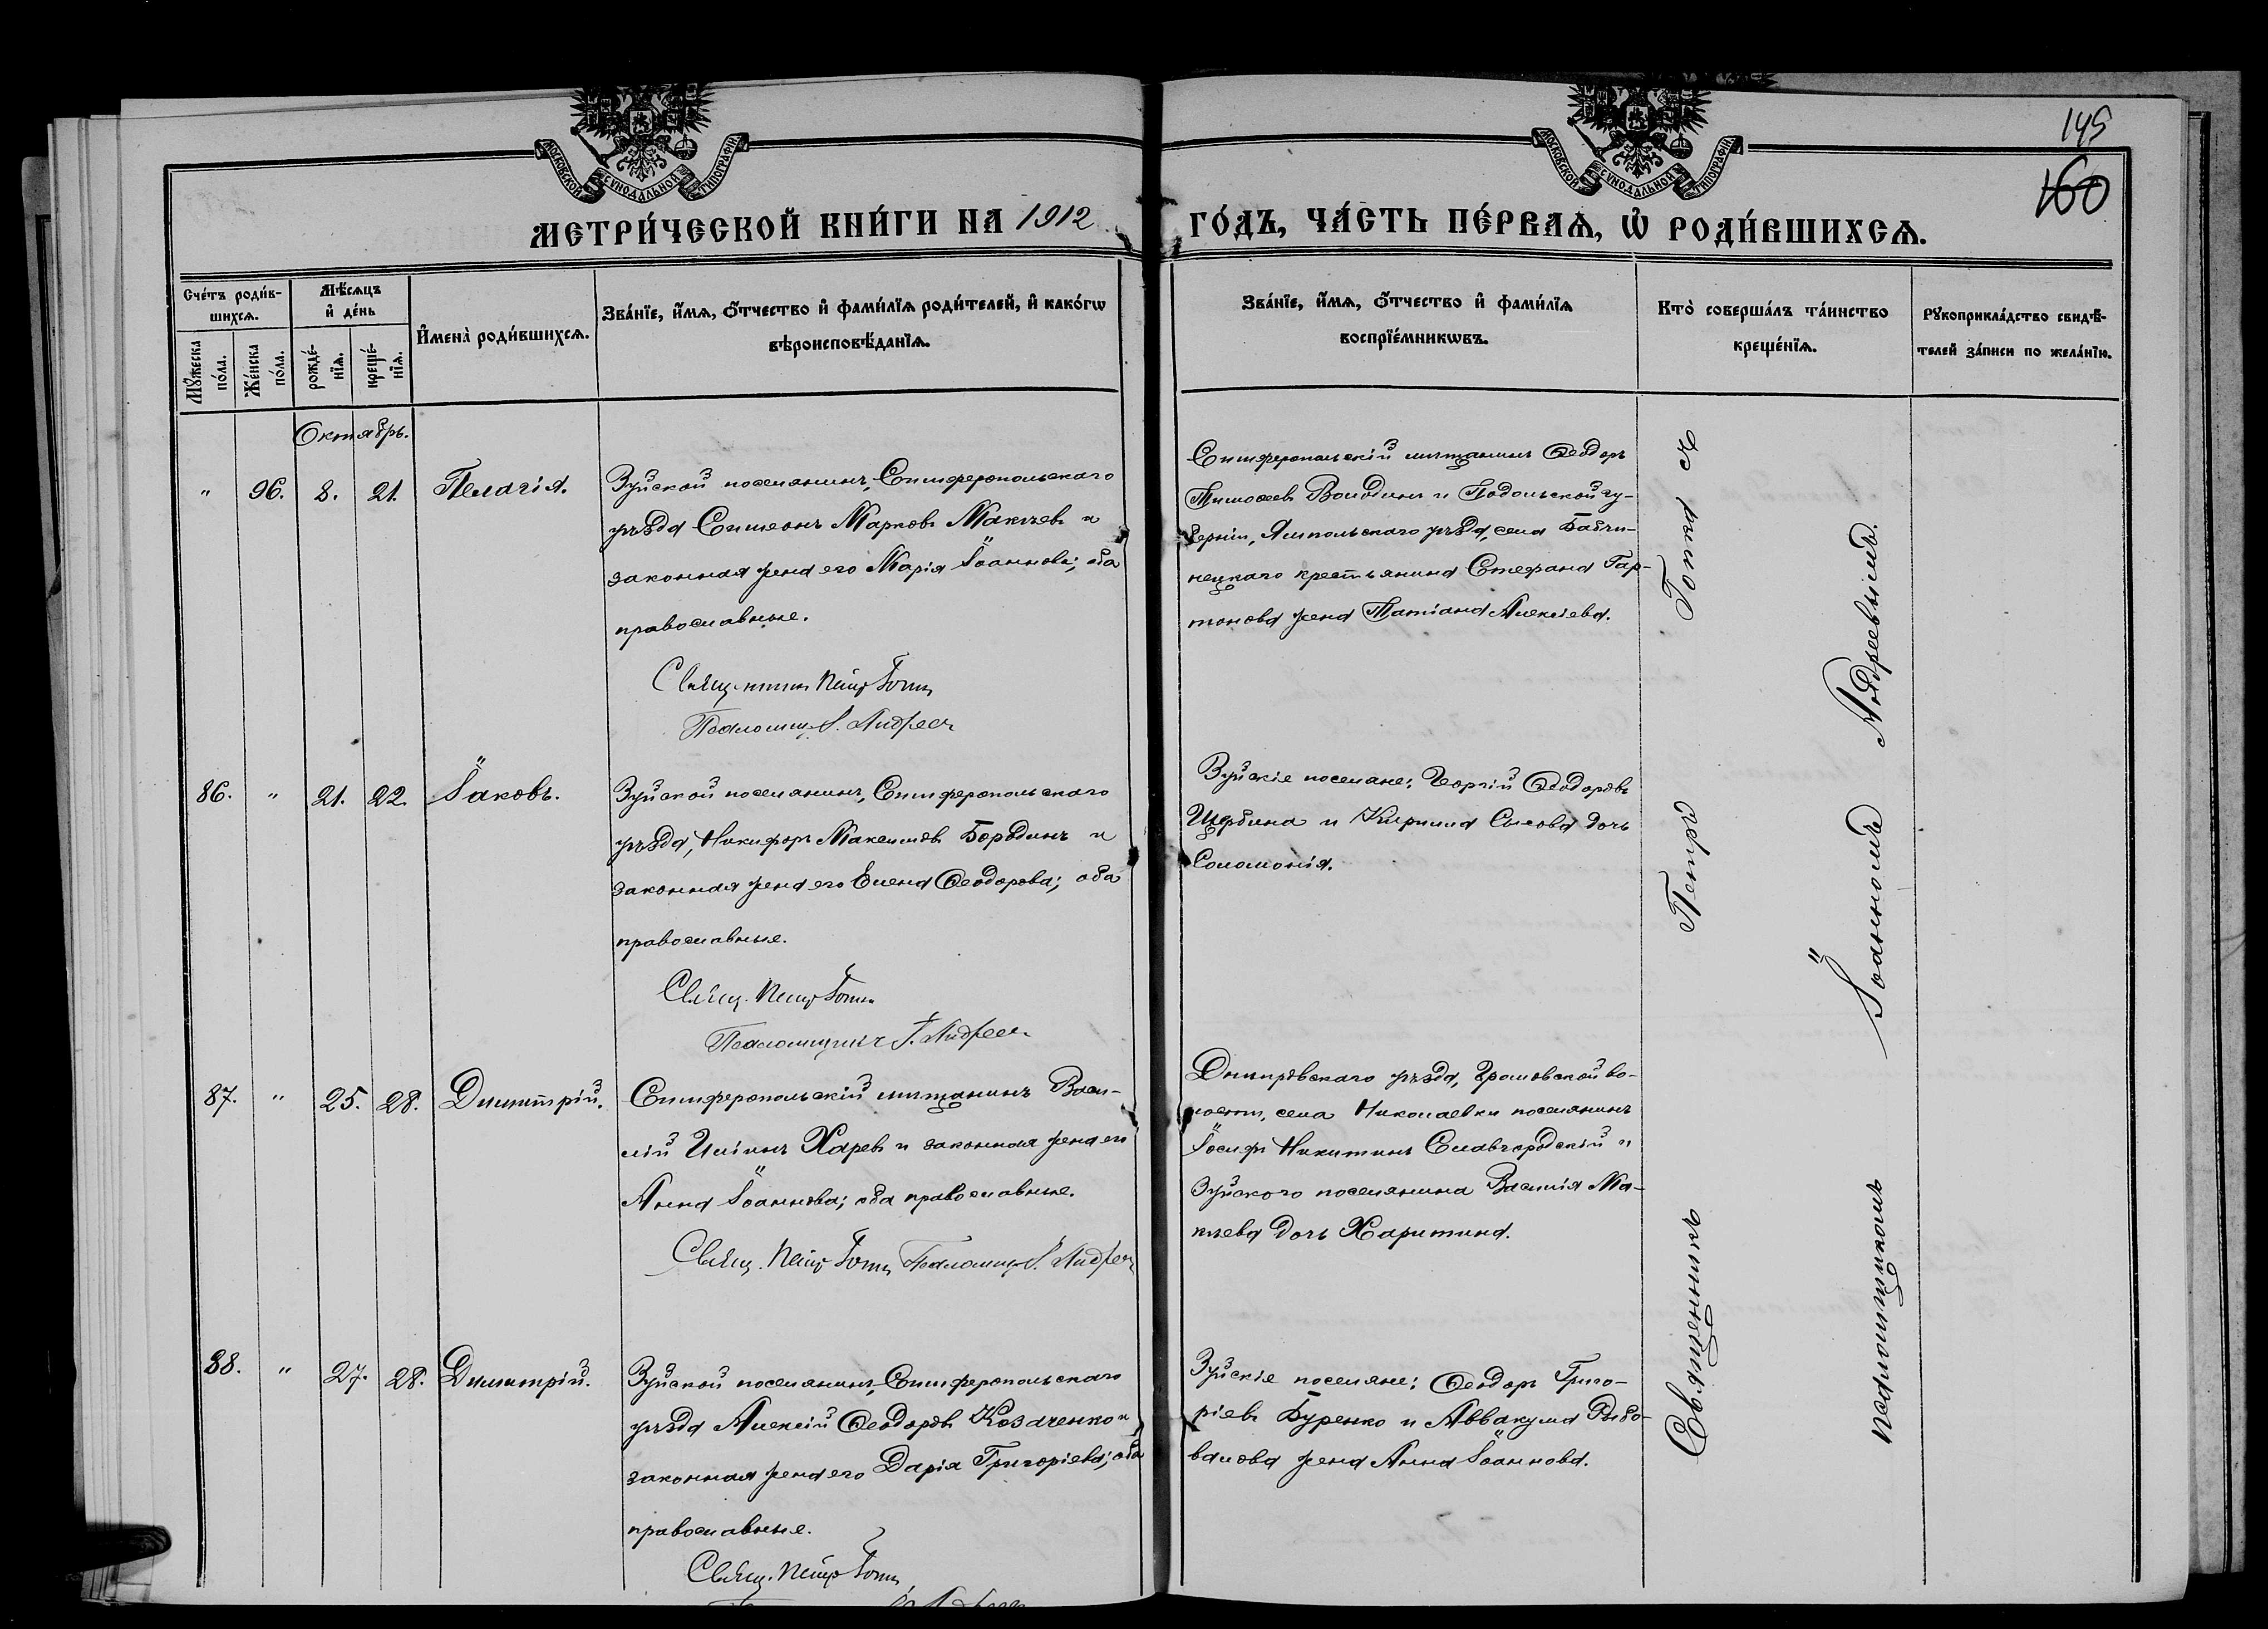 145
160
МОСКОВСКОЙ СУНОДАЛЬНОЙ ТИПОГРАФІИ
МОСКОВСКОЙ СУНОДАЛЬНОЙ ТИПОГРАФІИ
МЕТРИ́ЧЕСКОЙ КНИ́ГИ НА 1912 ГО́ДЪ, ЧА́СТЬ ПЕ́РВАѦ, Ѡ҆ РОДИ́ВШИХСѦ.
Сче́тъ роди́в-
шихсѧ.
Мꙋ́жеска по́ла.
Же́нска по́ла.
Мѣ́сѧцъ
и҆ де́нь
рожде́-
нїѧ.
креще́-
нїѧ.
И҆мена̀ роди́вшихсѧ.
Зва́нїе, и҆́мѧ, ѻ҆́тчество и҆ фами́лїѧ роди́телей, и҆ како́гѡ
вѣроисповѣ́данїѧ.
Зва́нїе, и҆́мѧ, ѻ҆́тчество и҆ фами́лїѧ
воспрїе́мникѡвъ.
Кто̀ соверша́лъ та́инство
креще́нїѧ.
Рꙋкоприкла́дство свидѣ́-
телей за́писи по жела́нїю.
Октябрь.
" 96. 8. 21. Пелагія.
Зуйской поселянинъ, Симферопольскаго
уѣзда Симеонъ Марковъ Макѣевъ и
законная жена его Марія Іоаннова; оба
православные.
Священникъ Петръ Гопка
Псаломщ. І. Андреев
Симферопольскій мѣщанинъ Ѳеодоръ
Тимоѳеевъ Володинъ и Подольской гу-
берніи, Ямпольскаго уѣзда, села Бабчи-
нецкаго крестьянина Стефана Гар-
монова жена Татіана Алексіева.
86. " 21. 22. Іаковъ.
Зуйской поселянинъ, Симферопольскаго
уѣзда, Никифоръ Максимовъ Бородинъ и
законная жена его Елена Ѳеодорова; оба
православные.
Свящ. Петръ Гопка
Псаломщикъ І. Андреев
Зуйскіе поселяне: Георгій Ѳеодоровъ
Щербина и Кирилла Сычова дочь
Соломонія.
87. " 25. 28. Димитрій.
Симферопольскій мѣщанинъ Васи-
лій Иліинъ Харевъ и законная жена его
Анна Іоаннова; оба православные.
Свящ. Петръ Гопка Псаломщ. І. Андреев
Днѣпровскаго уѣзда, Громовской во-
лости, села Николаевки поселянинъ
Іосифъ Никитинъ Славгородскій и
Зуйского поселянина Василія Ма-
кѣева дочь Харитина.
88. " 27. 28. Димитрій.
Зуйской поселянинъ, Симферопольскаго
уѣзда Алексій Ѳеодоровъ Козаченко и
законная жена его Дарія Григоріева; оба
православные.
Свящ. Петръ Гопка
Зуйскіе поселяне: Ѳеодоръ Григо-
ріевъ Буренко и Аввакума Рыбо-
валова жена Анна Іоаннова.
Священникъ Петръ Гопка съ
псаломщикомъ Іоанномъ Андреевымъ.